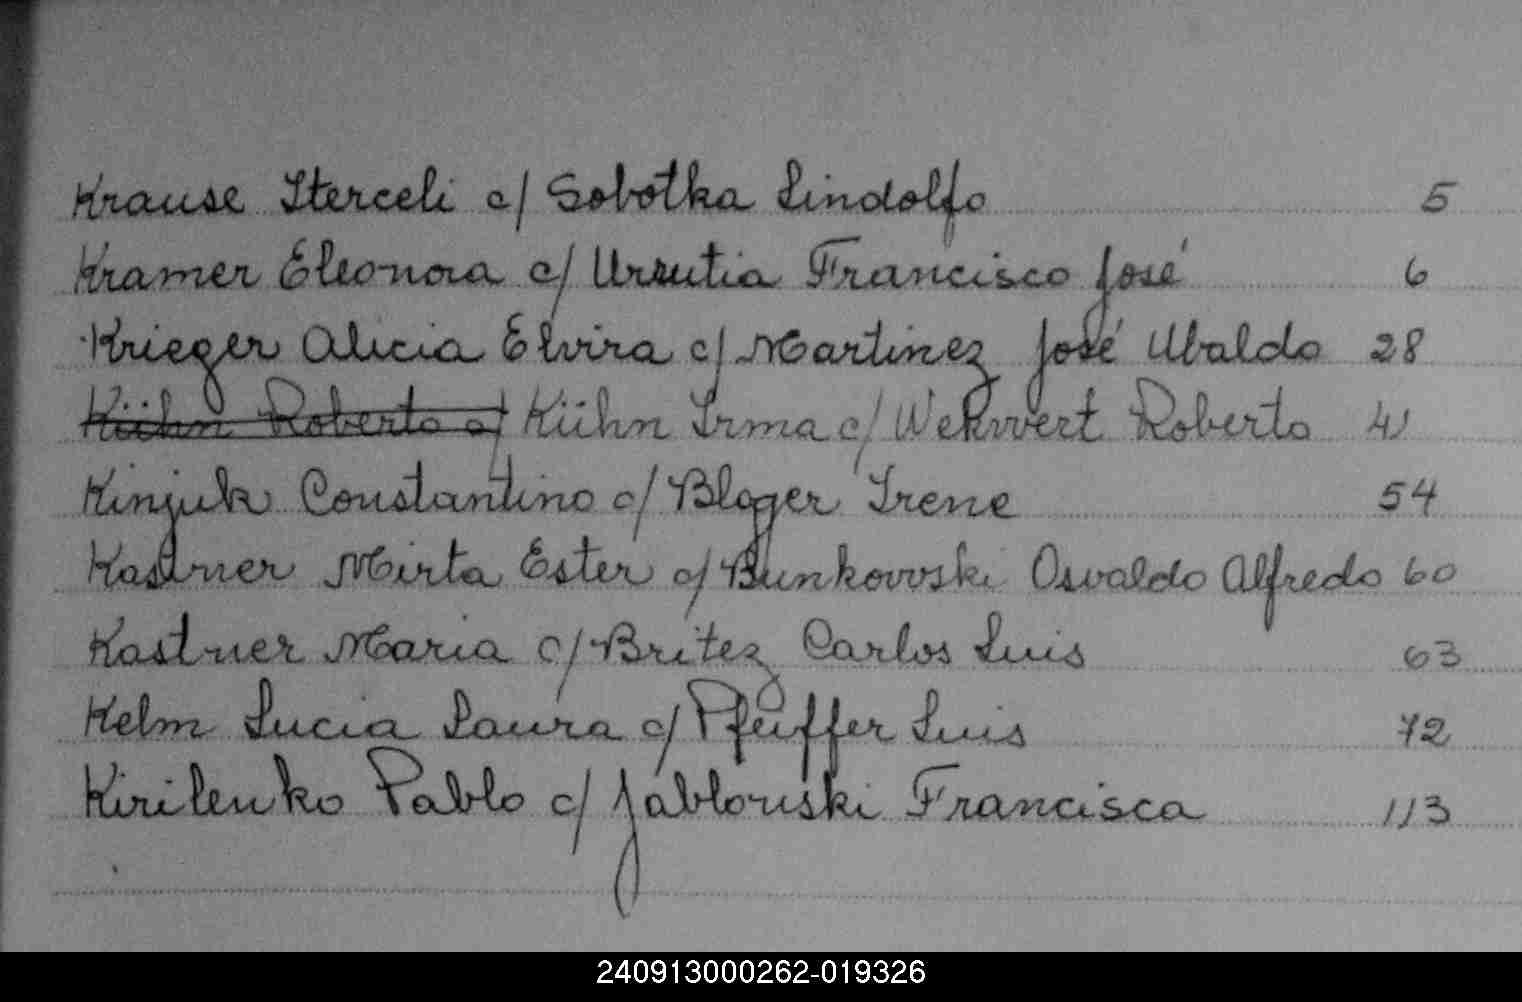 Krause Iterceli c/ Sobotka Lindolfo 5
Kramer Eleonora c/ Urrutia Francisco José 6
Krieger Alicia Elvira c/ Martinez José Ubaldo 28
Kühn Roberto c/ Kühn Irma c/ Wekwert Roberto 41
Kinjuk Constantino c/ Bloger Irene 54
Kastner Mirta Ester c/ Bunkowski Osvaldo Alfredo 60
Kastner Maria c/ Britez Carlos Luis 63
Kelm Lucia Laura c/ Pfeiffer Luis 72
Kirilenko Pablo c/ Jablonski Francisca 113
240913000262-019326